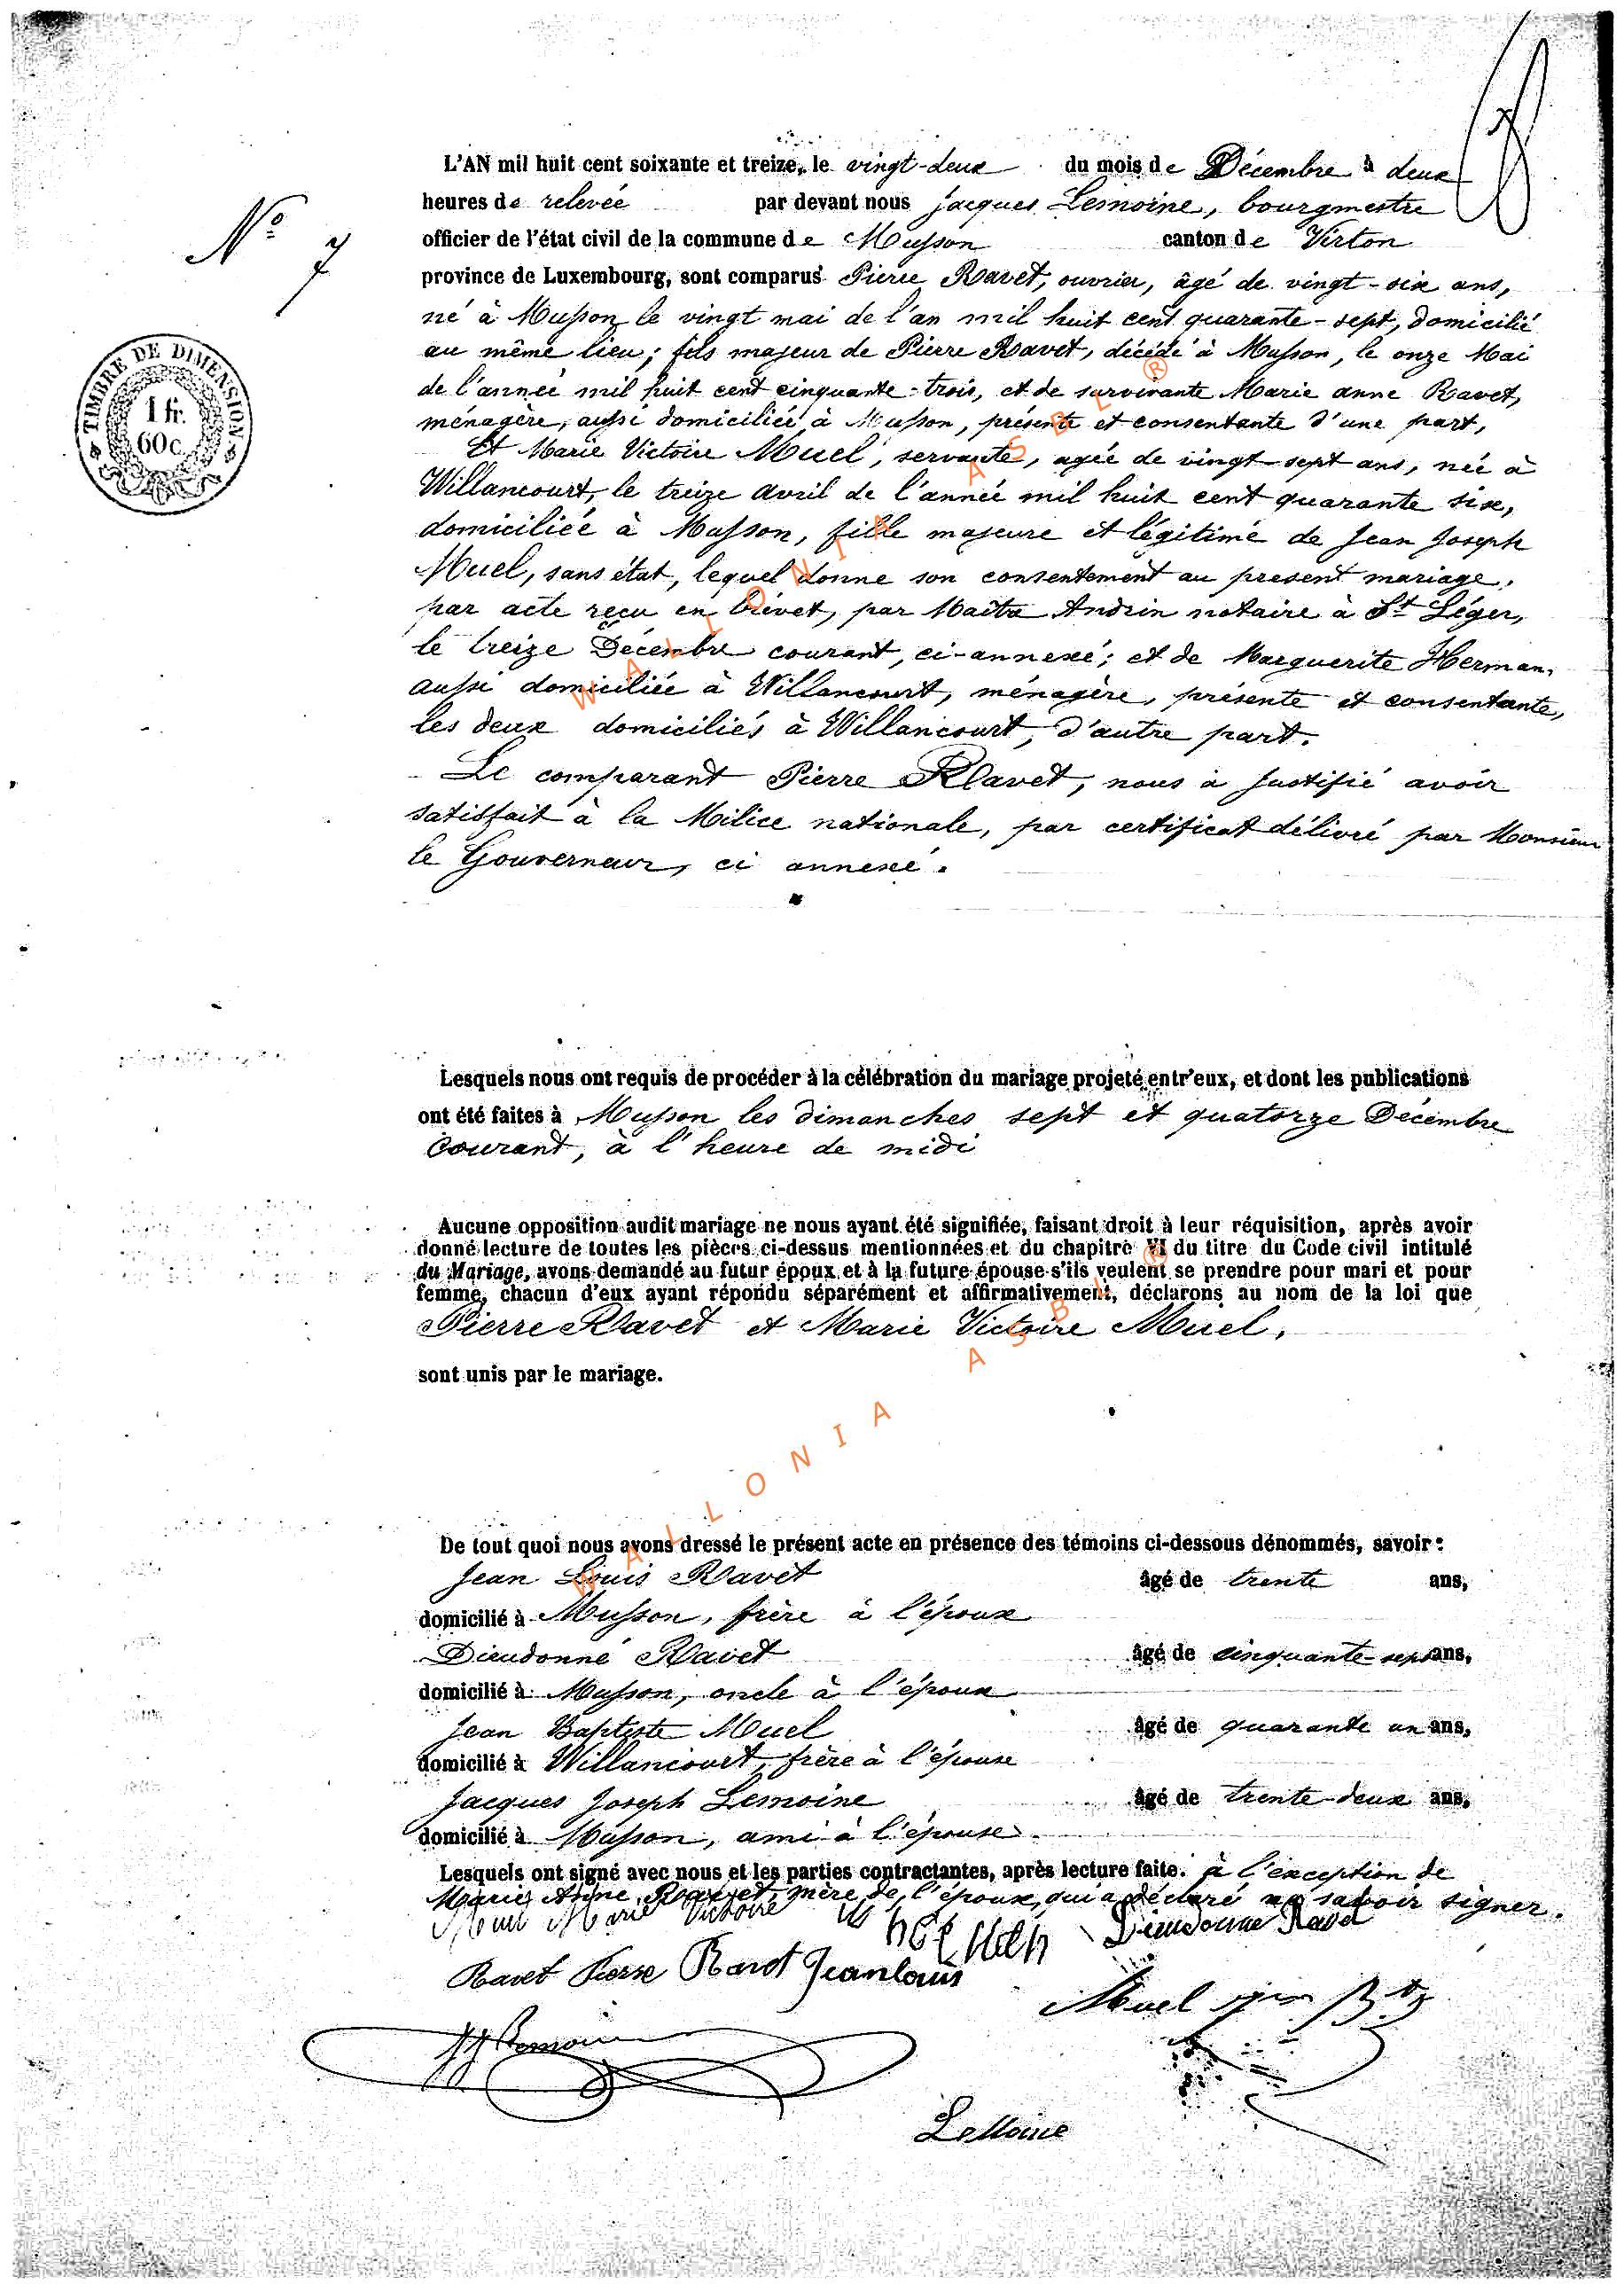 L'AN mil huit cent soixante et treize, le vingt-deux du mois de Décembre à deux
heures de relevée par devant nous Jacques Lemoine, bourgmestre
officier de l'état civil de la commune de Musson canton de Virton
N° 7
province de Luxembourg, sont comparus Pierre Ravet, ouvrier, âgé de vingt-six ans,
né à Musson le vingt mai de l'an mil huit cent quarante-sept, domicilié
au même lieu; fils majeur de Pierre Ravet, décédé à Musson, le onze Mai
de l'année mil huit cent cinquante-trois, et de survivante Marie anne Ravet,
ménagère, aussi domiciliée à Musson, présente et consentante d'une part,
Et Marie Victoire Muel, servante, agée de vingt-sept ans, née à
Willancourt, le treize avril de l'année mil huit cent quarante six,
domiciliée à Musson, fille majeure et légitime de Jean Joseph
Muel, sans état, lequel donne son consentement au present mariage,
par acte reçu en brévet, par Maître Andrin notaire à St Léger,
le treize Décembre courant, ci-annexé; et de Marguerite Herman,
aussi domiciliée à Willancourt, ménagère, présente et consentante,
les deux domiciliés à Willancourt, d'autre part.
Le comparant Pierre Ravet, nous a justifié avoir
satisfait à la Milice nationale, par certificat délivré par Monsieur
le Gouverneur, ci annexé.
TIMBRE DE DIMENSION
1 fr.
60 c.
Lesquels nous ont requis de procéder à la célébration du mariage projeté entr'eux, et dont les publications
ont été faites à Musson les dimanches sept et quatorze Décembre
courant, à l'heure de midi
Aucune opposition audit mariage ne nous ayant été signifiée, faisant droit à leur réquisition, après avoir
donné lecture de toutes les pièces ci-dessus mentionnées et du chapitre VI du titre du Code civil intitulé
du Mariage, avons demandé au futur époux et à la future épouse s'ils veulent se prendre pour mari et pour
femme, chacun d'eux ayant répondu séparément et affirmativement, déclarons au nom de la loi que
Pierre Ravet et Marie Victoire Muel,
sont unis par le mariage.
De tout quoi nous avons dressé le présent acte en présence des témoins ci-dessous dénommés, savoir:
Jean Louis Ravet âgé de trente ans,
domicilié à Musson, frère à l'époux
Dieudonné Ravet âgé de cinquante-sept ans,
domicilié à Musson, oncle à l'époux
Jean Baptiste Muel âgé de quarante un ans,
domicilié à Willancourt, frère à l'épouse
Jacques Joseph Lemoine âgé de trente-deux ans,
domicilié à Musson, ami à l'épouse.
Lesquels ont signé avec nous et les parties contractantes, après lecture faite. à l'exception de
Marie Anne Ravet, mère de l'époux, qui a déclaré ne savoir signer.
Muel Marie Victoire Dieudonne Ravet
Ravet Pierre Ravet Jean louis
Muel
JJ Lemoine
Lemoine
WALLONIA ASBL ®
WALLONIA ASBL ®